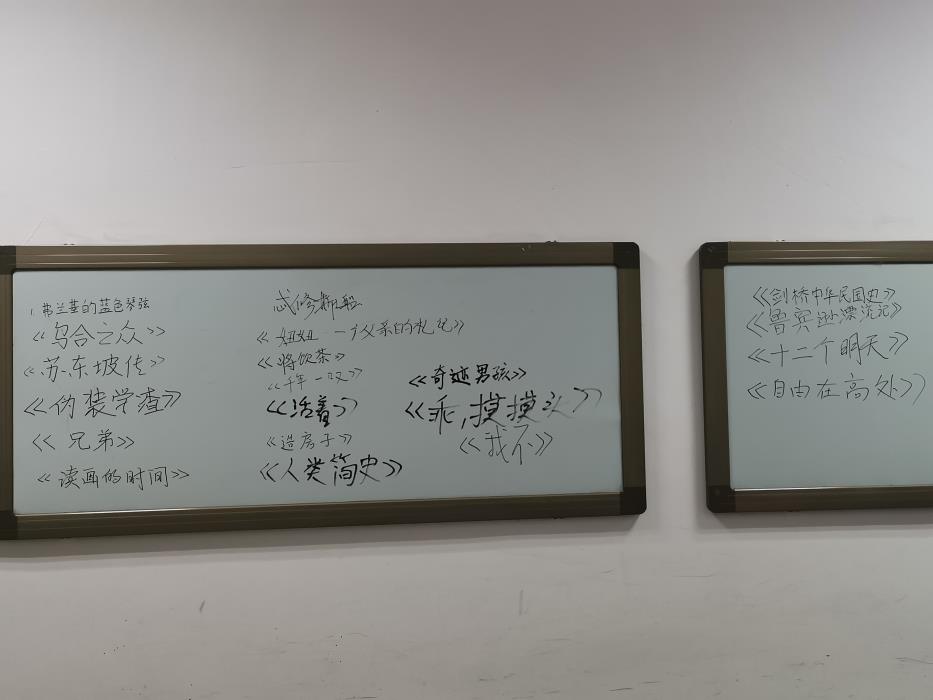 1. 弗兰茎的蓝色琴弦
《乌合之众》
《苏东坡传》
《伪装学渣》
《兄弟》
《读画的时间》
《妞妞 一个父亲的札记》
《将饮茶》
《千年一叹》
《活着》
《造房子》
《人类简史》
《奇迹男孩》
《乖,摸摸头》
《我不》
《剑桥中华民国史》
《鲁宾逊漂流记》
《十二个明天》
《自由在高处》